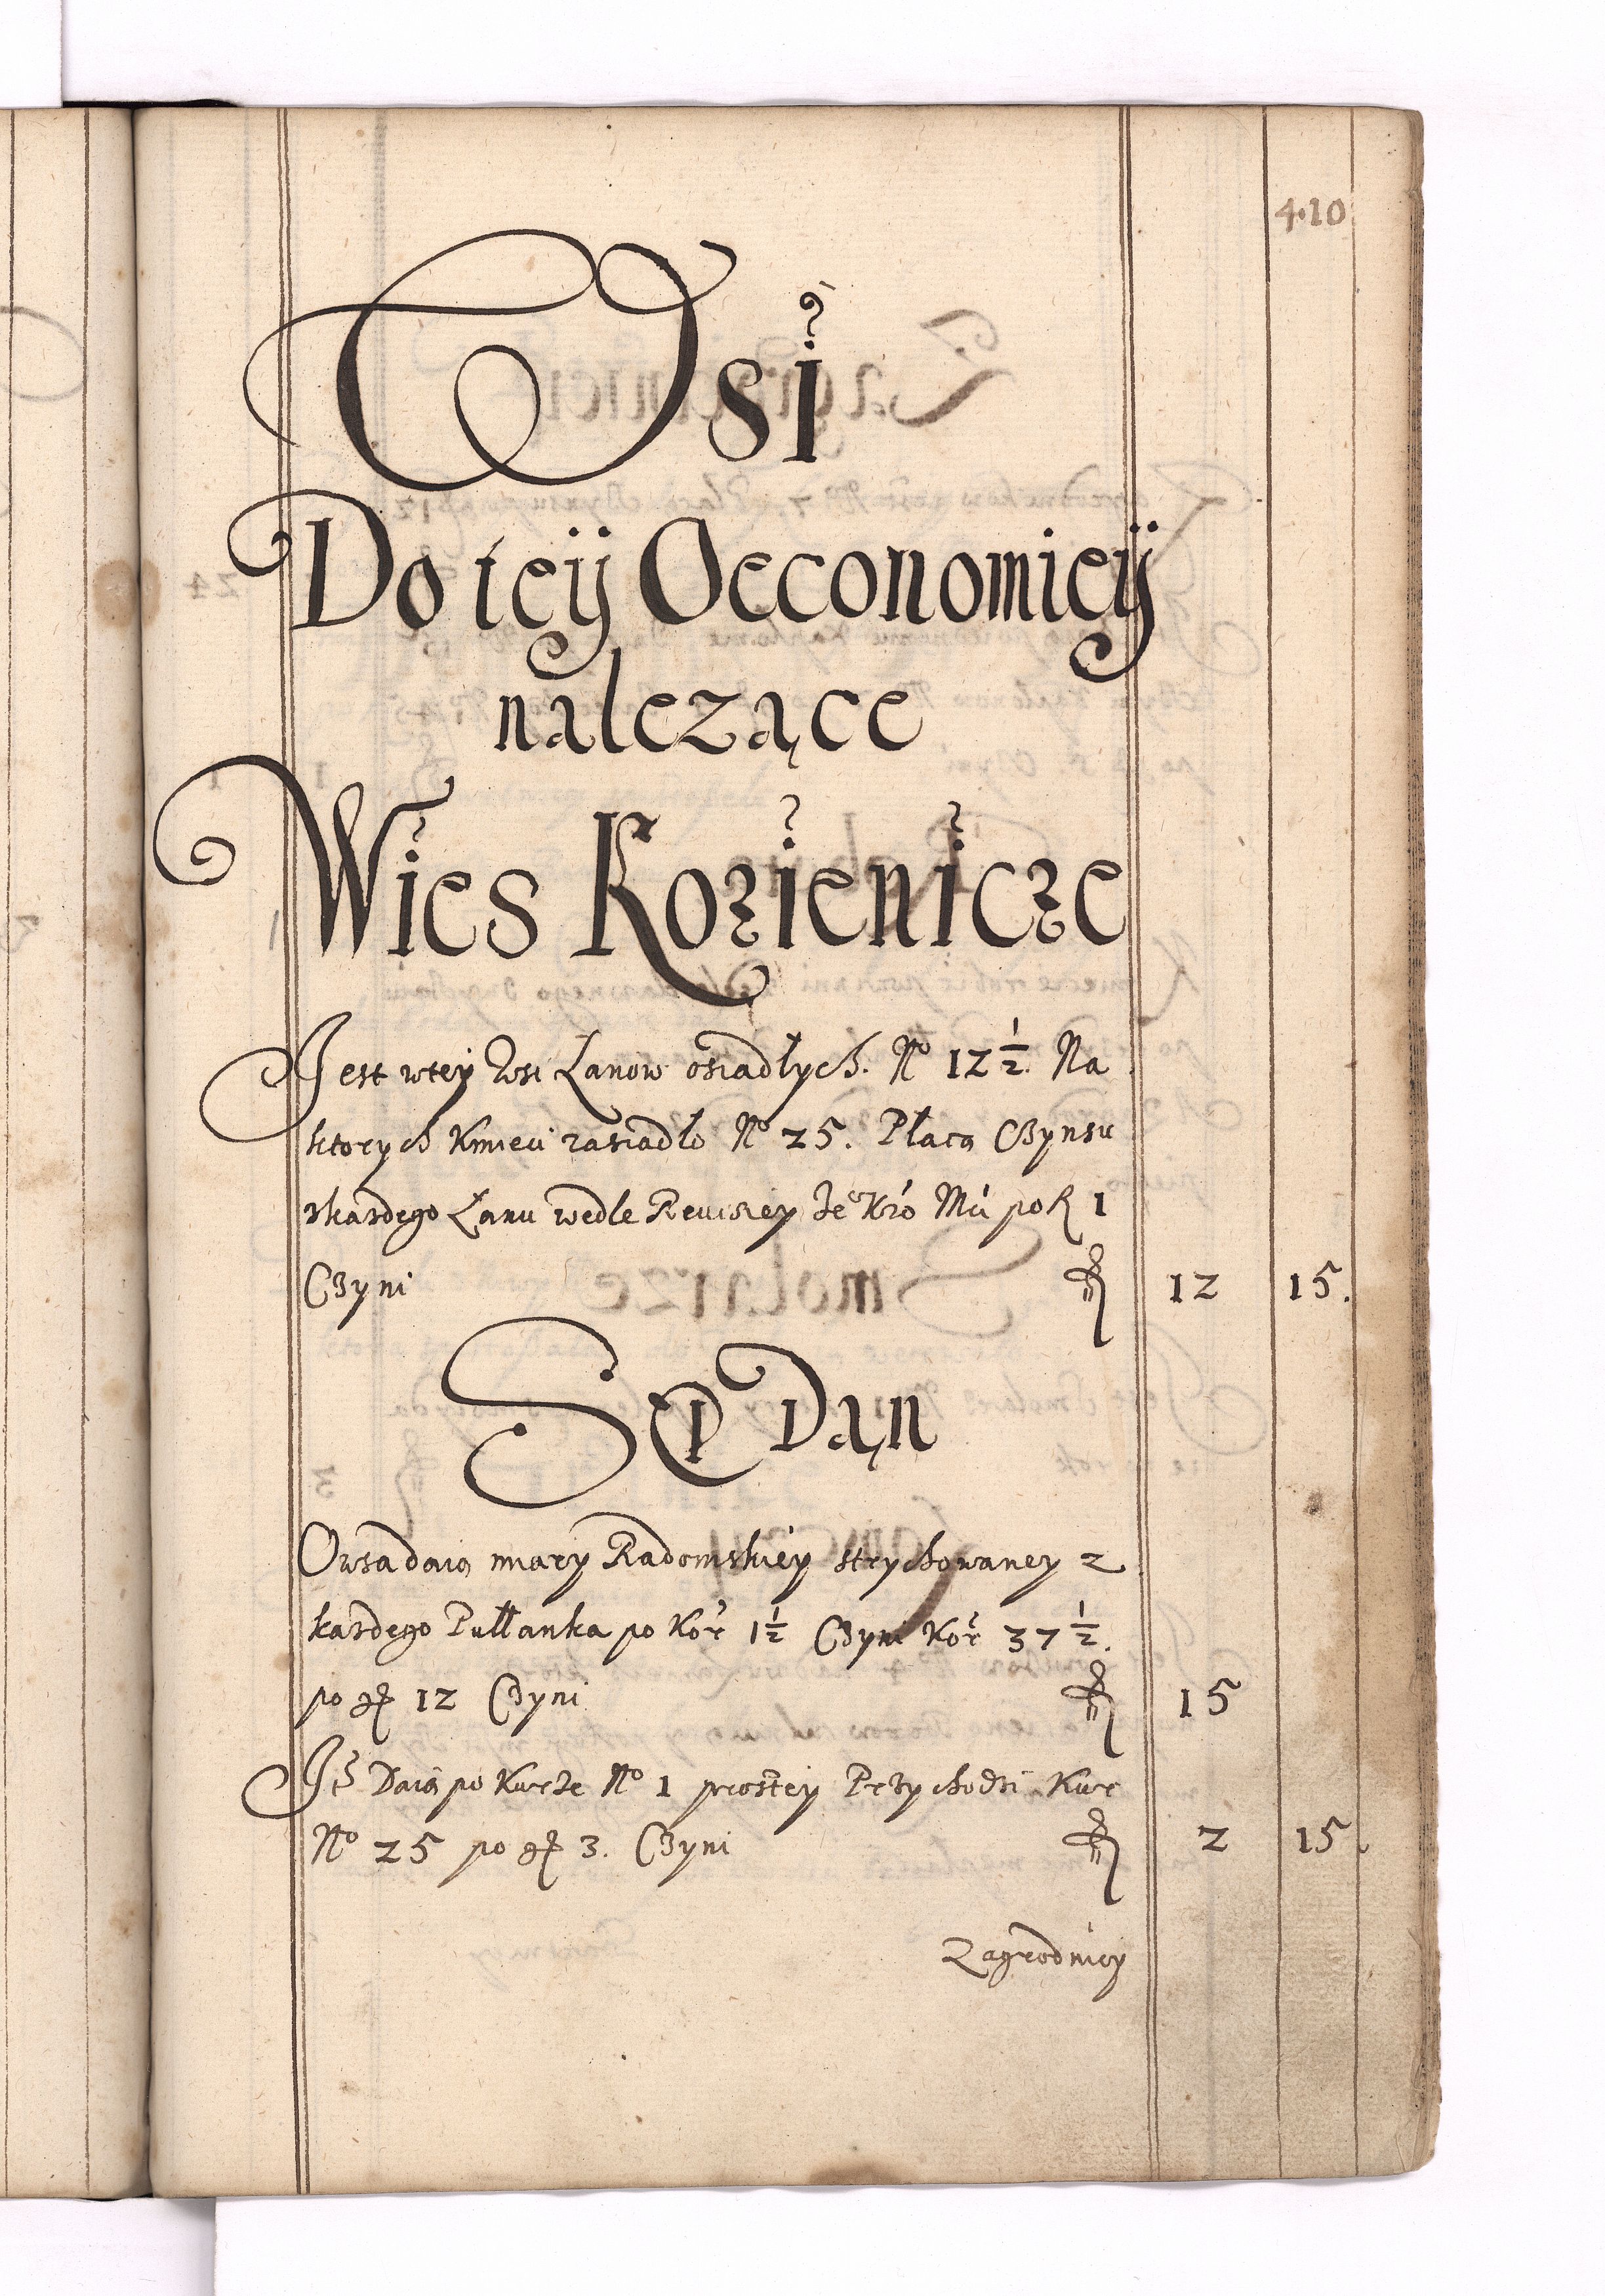 410
Wsi
Do tey Oeconomiey
nalezące
Wies Kozienicze
Jest wtey Wsi Lanow osiadłych. No 12 1/2. Na
ktorych Kmieci zasiadło No 25. Płacą Czynsu
zkazdego Lanu wedle Rewiziey Je Kró Mći po fl 1
Czyni fl 12 15.
Sep Dąn
Owsa daią miary Radomskiey strychowaney z
kazdego Pułłanka po Kor 1 1/2 Czyni Kor 37 1/2.
po gr 12 Czyni fl 15
It Daią po Kurze No 1 prostey Przychodzi Kur
No 25 po gr 3. Czyni fl 2 15.
Zagrodnicy